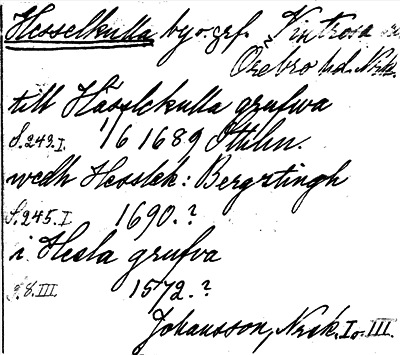 Hesselkulla by o. grf. Vintrosa sn
Örebro hd. Nrk.
till Hässlekulla grufwa
S. 243. I. 1/6 1689 Sthlm.
wedh Hesslek: Bergstingh
S. 245. I 1690.?
i Hesla grufva
S. 8. III. 1572.?
Johansson, Nrk. I o. III.